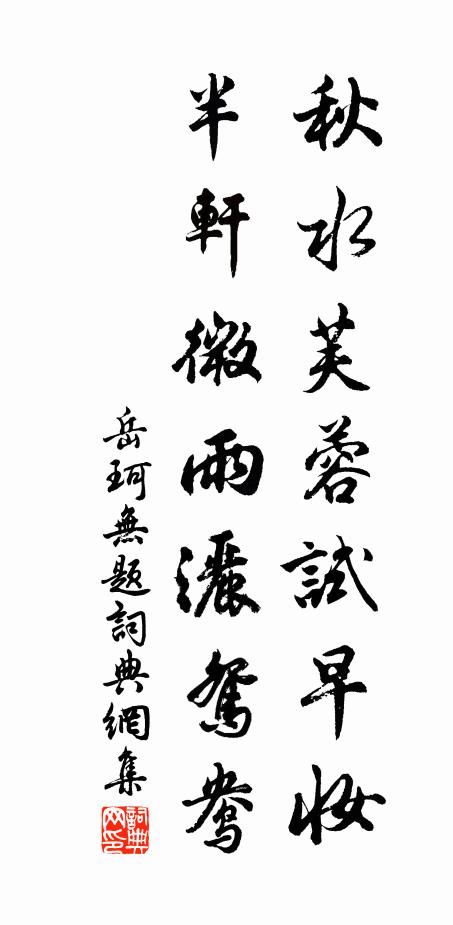 秋水芙蓉試早妝
半軒微雨灑鴛鴦
岳珂無題詞典網集
詞典网印